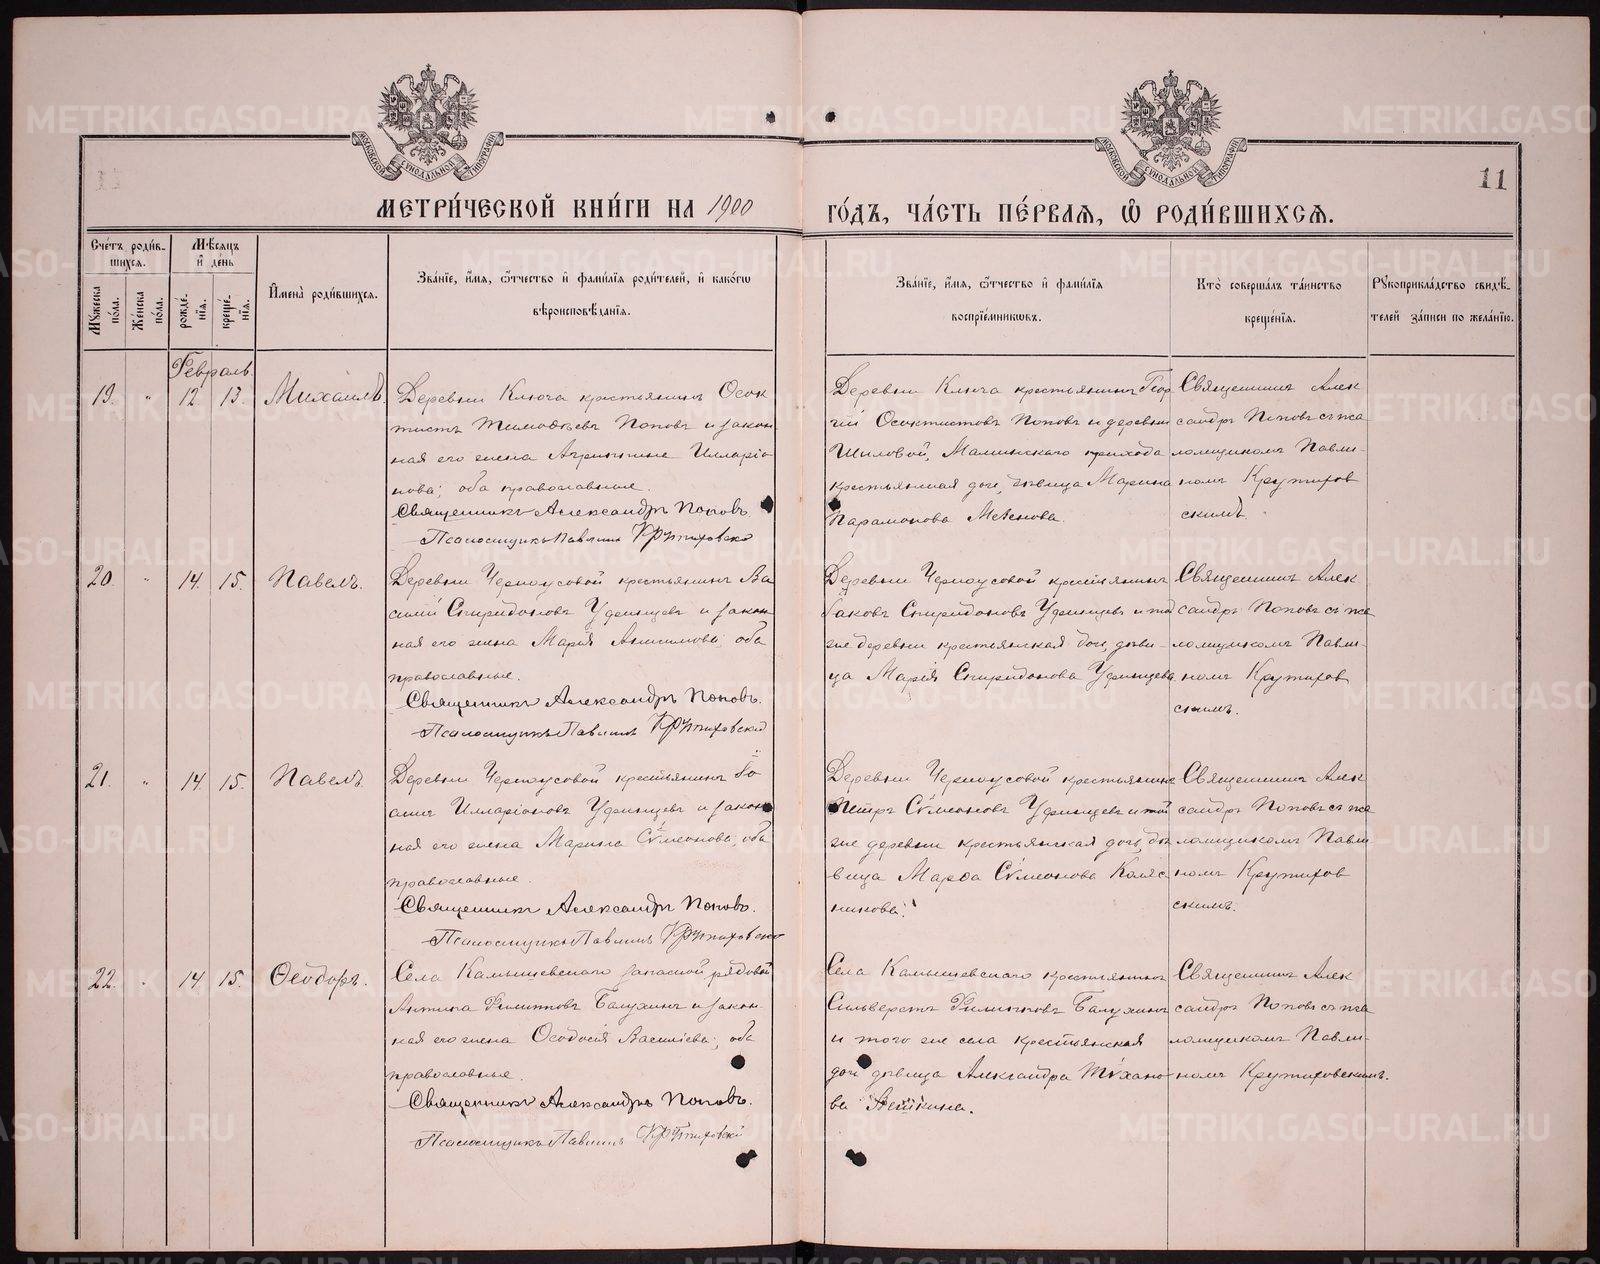 11
МЕТРИ́ЧЕСКОЙ КНИ́ГИ НА 1900
ГО́ДЪ, ЧА́СТЬ ПЕ́РВАѦ, Ѽ РОДИ́ВШИХСѦ.
Сче́тъ роди́в-
шихсѧ.
Мꙋжеска по́ла.
Же́нска по́ла.
Мѣ́сѧцъ
и҆ де́нь
рожде́-
нїѧ.
креще́-
нїѧ.
И҆мена̀ роди́вшихсѧ.
Зва́нїе, и҆́мѧ, ѻ҆́тчество и҆ фами́лїѧ роди́телей, и҆ како́гѡ
вѣроисповѣ́данїѧ.
Зва́нїе, и҆́мѧ, ѻ҆́тчество и҆ фами́лїѧ
воспрїе́мникѡвъ.
Кто̀ соверша́лъ та́инство
креще́нїѧ.
Рꙋкоприкла́дство свидѣ́-
телей за́писи по жела́нїю.
Февраль
19. " 12 13. Михаилъ.
Деревни Ключа крестьянинъ Ѳеок
тистъ Тимоѳеевъ Поповъ и закон
ная его жена Агриппина Илларіо
нова; оба православные.
Священникъ Александръ Поповъ.
Псаломщикъ Павлинъ Крутиховскій
Деревни Ключа крестьянинъ Геор
гій Ѳеоктистовъ Поповъ и деревни
Шиловой, Маминскаго прихода
крестьянская дочь, дѣвица Марина
Парамонова
Священникъ Алек
сандръ Поповъ съ пса
ломщикомъ Павли-
номъ Крутихов
скимъ.
20. " 14. 15. Павелъ.
Деревни Черноусовой крестьянинъ Ва
силій Спиридоновъ Удинцевъ и закон
ная его жена Марія Анисимова, оба
православные.
Священникъ Александръ Поповъ.
Псаломщикъ Павлинъ Крутиховскій
Деревни Черноусовой крестьянинъ
Іаковъ Спиридоновъ Удинцевъ и той
же деревни крестьянская дочь, дѣви-
ца Марія Спиридонова Удинцева
Священникъ Алек
сандръ Поповъ съ пса
ломщикомъ Павли-
номъ Крутихов
скимъ.
21. " 14 15. Павелъ.
Деревни Черноусовой крестьянинъ Іо
аннъ Илларіоновъ Удинцевъ и закон
ная его жена Марина Сѵмеонова, оба
православные.
Священникъ Александръ Поповъ.
Псаломщикъ Павлинъ Крутиховскій
Деревни Черноусовой крестьянинъ
Петръ Сѵмеоновъ Удинцевъ и той
же деревни крестьянская дочь, дѣ
вица Марѳа Сѵмеонова Коляс
никова.
Священникъ Алек
сандръ Поповъ съ пса
ломщикомъ Павли
номъ Крутихов
скимъ.
22. " 14 15. Ѳеодоръ.
Села Камышевскаго запасной рядовой
Антипа Филипповъ Балухинъ и закон-
ная его жена Ѳеодосія Василіева; оба
православные.
Священникъ Александръ Поповъ.
Псаломщикъ Павлинъ Крутиховскій
Села Камышевскаго крестьянинъ
Сильверстъ Филипповъ Балухинъ
и того же села крестьянская
дочь дѣвица Александра Тихано
ва
Священникъ Алек
сандръ Поповъ съ пса
ломщикомъ Павли-
номъ Крутиховскимъ.
METRIKI.GASO-URAL.RU